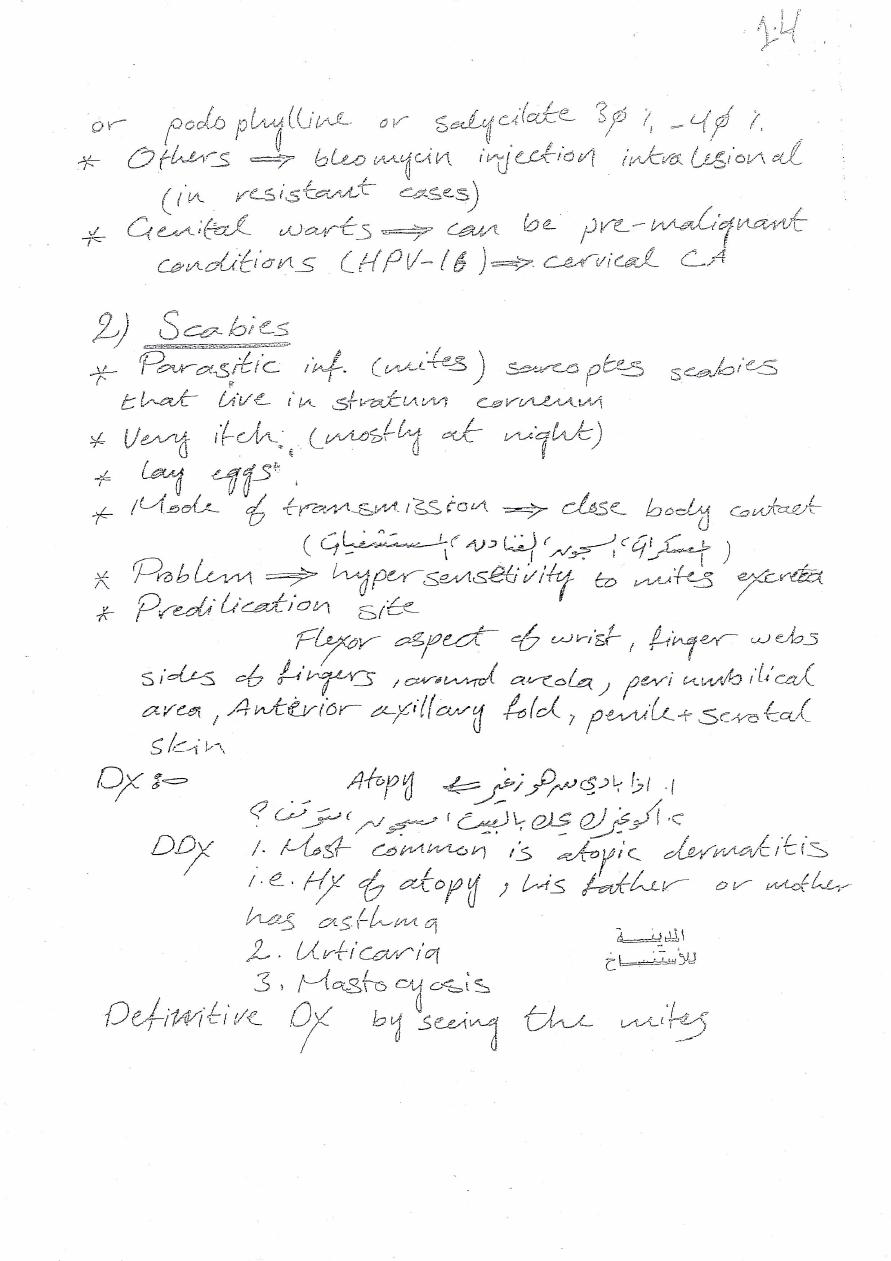 14
or podophylline or salycilate 30 % - 40 %.
* Others ⇒ bleomycin injection intralesional
(in resistant cases)
* Genital warts ⇒ can be pre-malignant
conditions (HPV-16) ⇒ cervical CA
2) Scabies
* Parasitic inf. (mites) sarcoptes scabies
that live in stratum corneum
* Very itch. (mostly at night)
* Lay eggs.
* Mode of transmission ⇒ close body contact
(المعسكرات، السجون، الفنادق، المستشفيات)
* Problem ⇒ hypersensetivity to mites excreta
* Predilication site
Flexor aspect of wrist, finger webs
sides of fingers, around areola, peri umbilical
area, Anterior axillary fold, penile + scrotal
skin
Dx :- Atopy ⇐ ١. اذا بادي من هو زغير
٢. اكو غيرك بالبيت
DDx 1. Most common is atopic dermatitis
i.e. Hx of atopy, his father or mother
has asthma
2. Urticaria
3. Mastocyosis
المدينة
للأستنساخ
Definitive Dx by seeing the mites